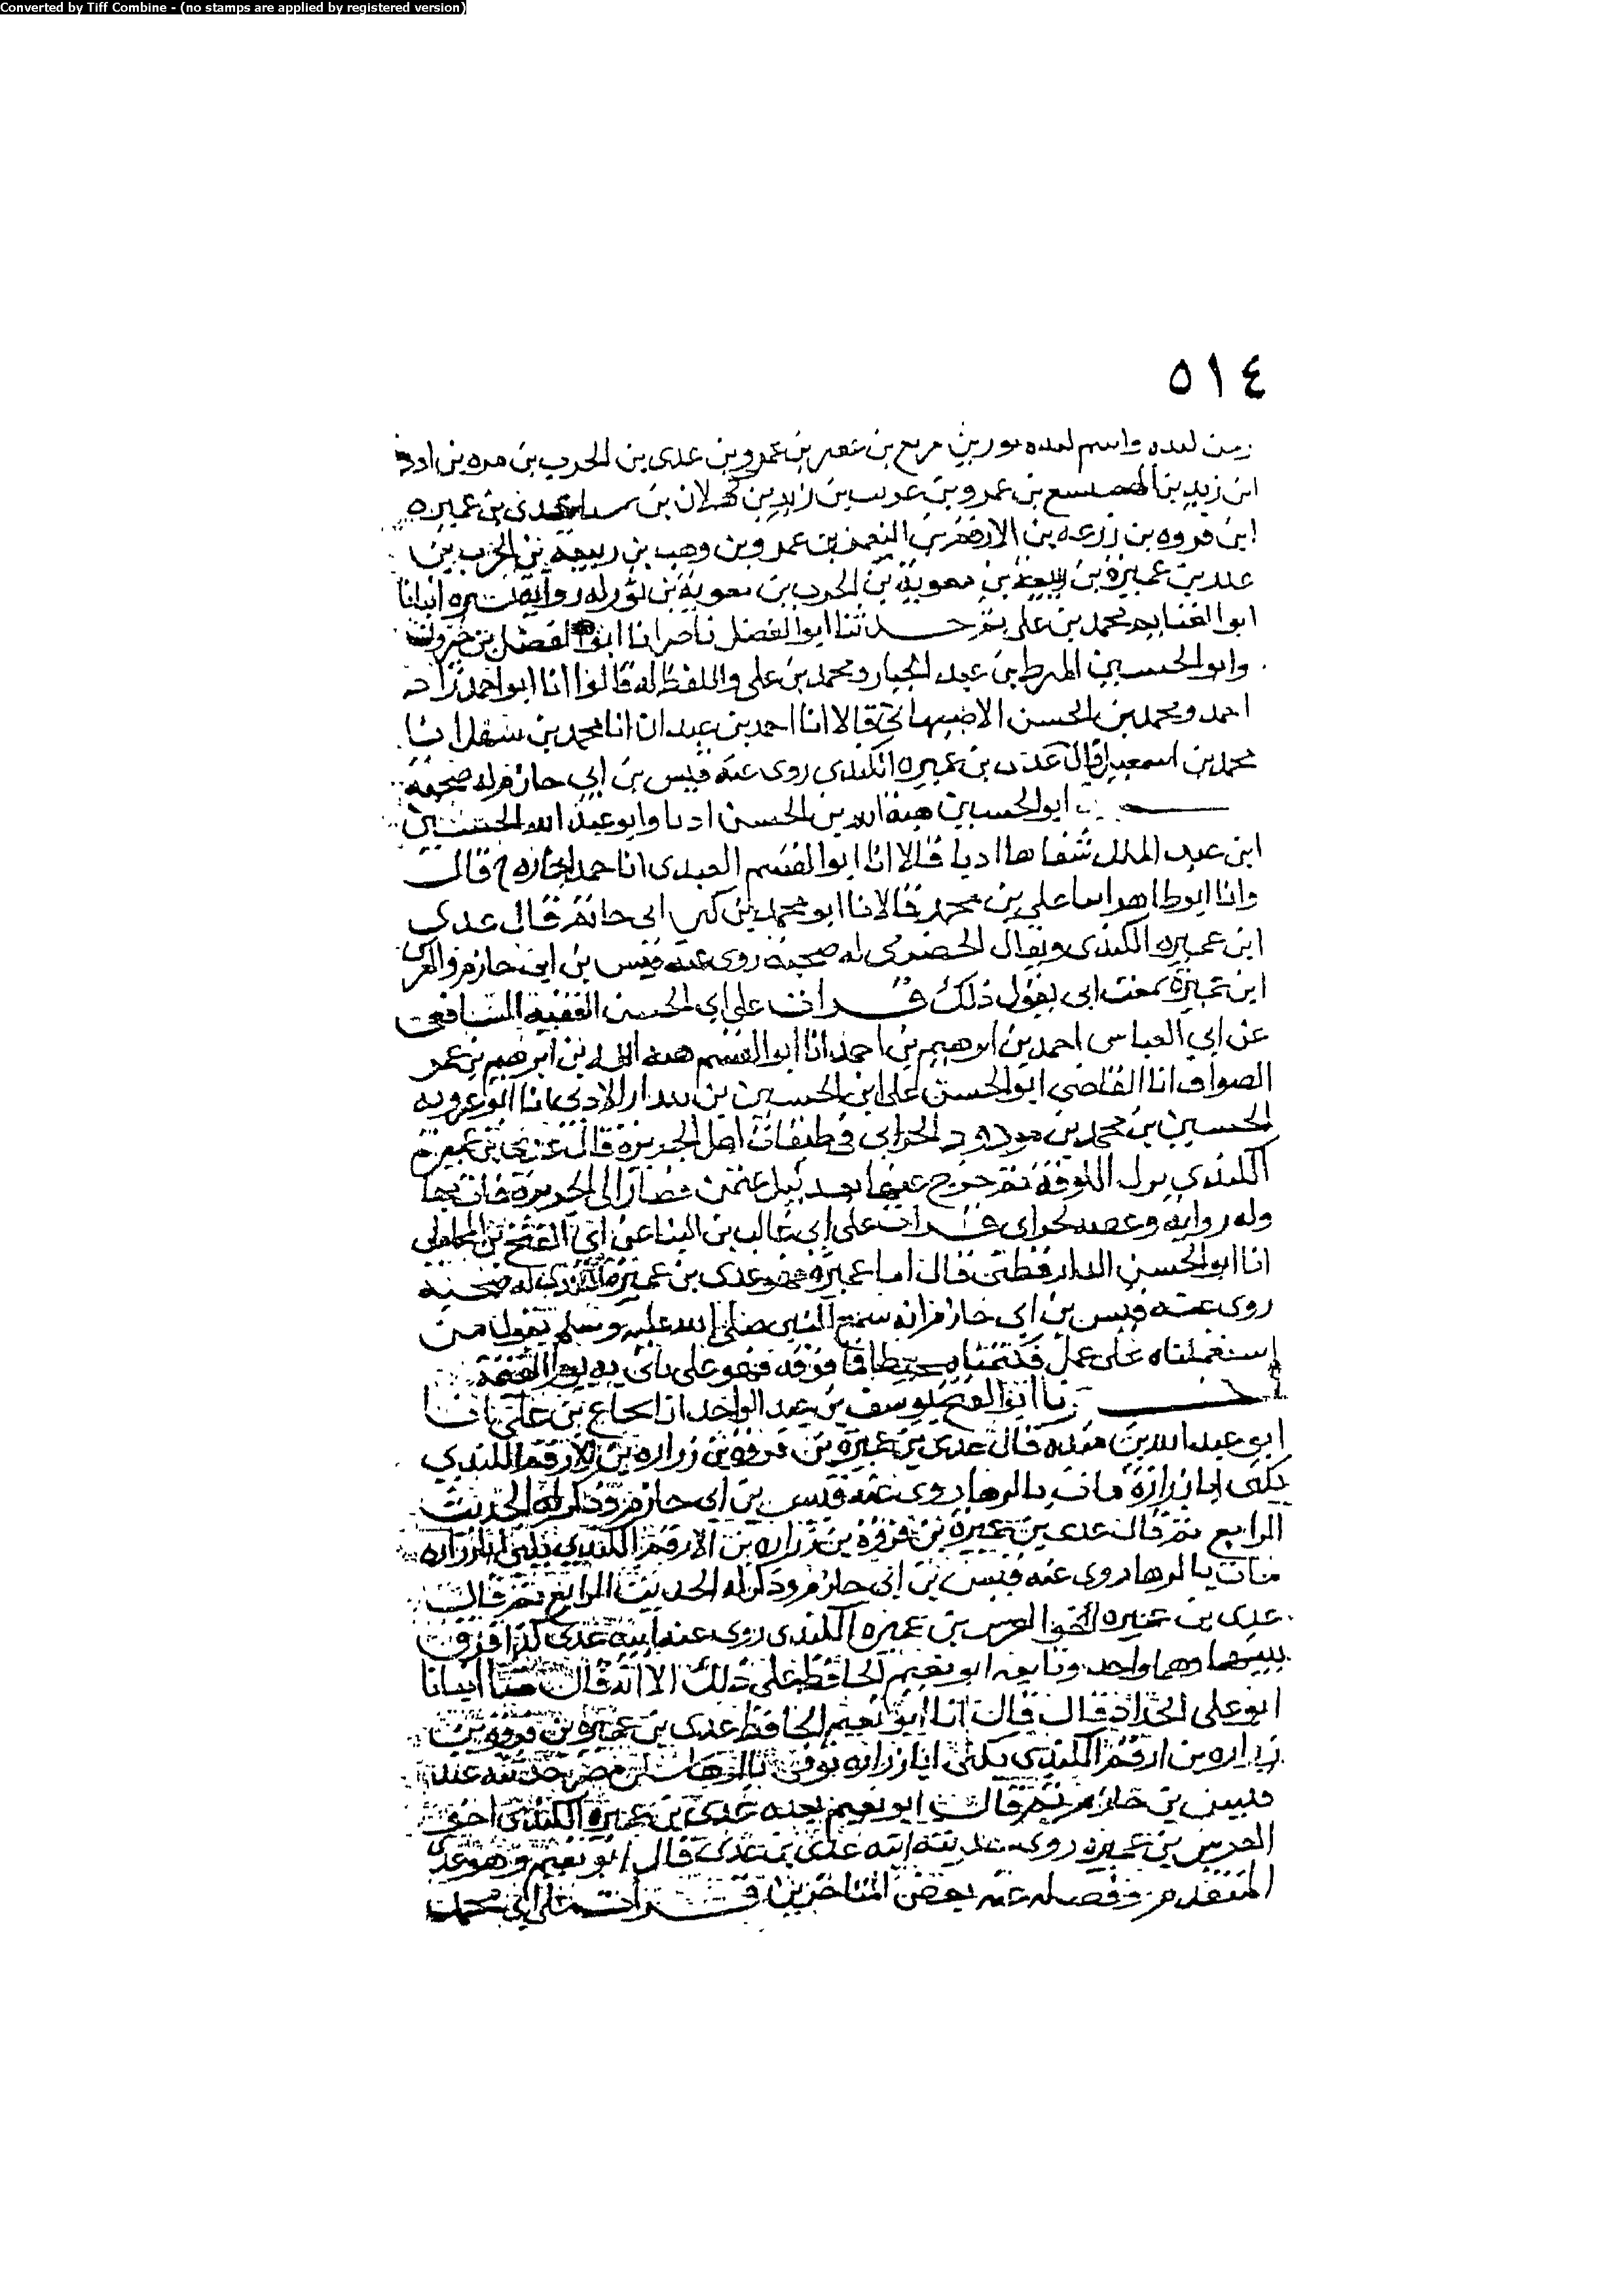 Converted by Tiff Combine - (no stamps are applied by registered version)
٥١٤
واسم بن مريع بن بن عمرو بن عدى بن الحرب بن مره بن ادد
ابن زيد بن الهميسع بن عمرو بن عريب بن زيد بن كهلان بن عدى بن عميره
ابن فروه بن زرعه بن الارقم بن النعمن بن عمرو بن وهب بن ربيعه بن الحرب بن
عدى بن عميرة بن ربيعة بن معوية بن الحرب بن معوية بن ثور له رواية انبانا
ابو الغنايم محمد بن على ثم حدثنا ابو الفضل ناصر انا ابو الفضل بن خرون
وابو الحسين بن عبد الجبار ومحمد بن على واللفظ له قالوا انا ابو احمد زاد
احمد ومحمد بن الحسن الاصبهاني قالا انا احمد بن عبدان انا محمد بن سهل انا
محمد بن اسمعيل قال عدى بن عميره الكندى روى عنه قيس بن ابي حازم له صحبة
ابو الحسين هبة الله بن الحسن اذنا وابو عبد الله الحسين
ابن عبد الملك شفاها اذنا قالا انا ابو القسم العبدى انا حمد اجازه ح قال
وانا ابو طاهر انبا علي بن محمد قالا انا ابو محمد بن ابى حاتم قال عدى
ابن عميره الكندى ويقال الحضرمى له صحبة روى عنه قيس بن ابى حازم والعرس
ابن عميرة سمعت ابى يقول ذلك قرات على ابي الحسن الفقيه الشافعى
عن ابي العباس احمد بن ابرهيم بن احمد انا ابو القسم هبة الله بن ابرهيم بن عمر
الصواف انا القاضى ابو الحسن على ابن الحسين بن بندار الاذنى انا ابو عروبه
الحسين بن محمد بن مودود الحرانى فى طبقات اهل الجزيرة قال عدى بن عميرة
الكندى نزل الكوفة ثم خرج عنها بعد قتل عثمن فصار الى الجزيرة فمات بها
وله رواية قرات على ابى غالب بن البنا عن ابى الفتح بن المحاملى
انا ابو الحسن الدارقطنى قال اما عميرة فهو عدى بن عميرة الكندى له صحبه
روى عنه قيس بن ابى حازم انه سمع النبى صلى الله عليه وسلم يقول من
استعملناه على عمل فكتمناه مخيطا فما فوقه فهو على ياتى به يوم القيمة
انا ابو الفتح يوسف بن عبد الواحد انا شجاع بن على انا
ابو عبد الله بن منده قال عدى بن عميرة بن فروة بن زراره بن الارقم الكندي
يكنى ابا زرارة مات بالرها روى عنه قيس بن ابى حازم وذكر له الحديث
الرابع ثم قال عدى بن عميرة بن فروة بن زراره بن الارقم الكندى يكنى ابا زراره
مات بالرها روى عنه قيس بن ابى حازم وذكر له الحديث الرابع ثم قال
عدى بن عميره اخو العرس بن عميره الكندى روى عنه ابنه عدى كذا فرق
بينهما وهما واحد وتابعه ابو نعيم الحافظ على ذلك الا انه قال انبانا
ابو على الحداد قال قال انا ابو نعيم الحافظ عدى بن عميرة بن فروة بن
زراره بن ارقم الكندى يكنى ابا زراره توفى بالرها حديثه عند
قيس بن حازم ثم قال ابو نعيم بعده عدى بن عميره الكندى اخو
العرس بن عميره روى حديثه ابنه عدى بن عدى قال ابو نعيم وهو عدى
المتقدم وفصله عنه بعض المتاخرين قرات على ابي محمد